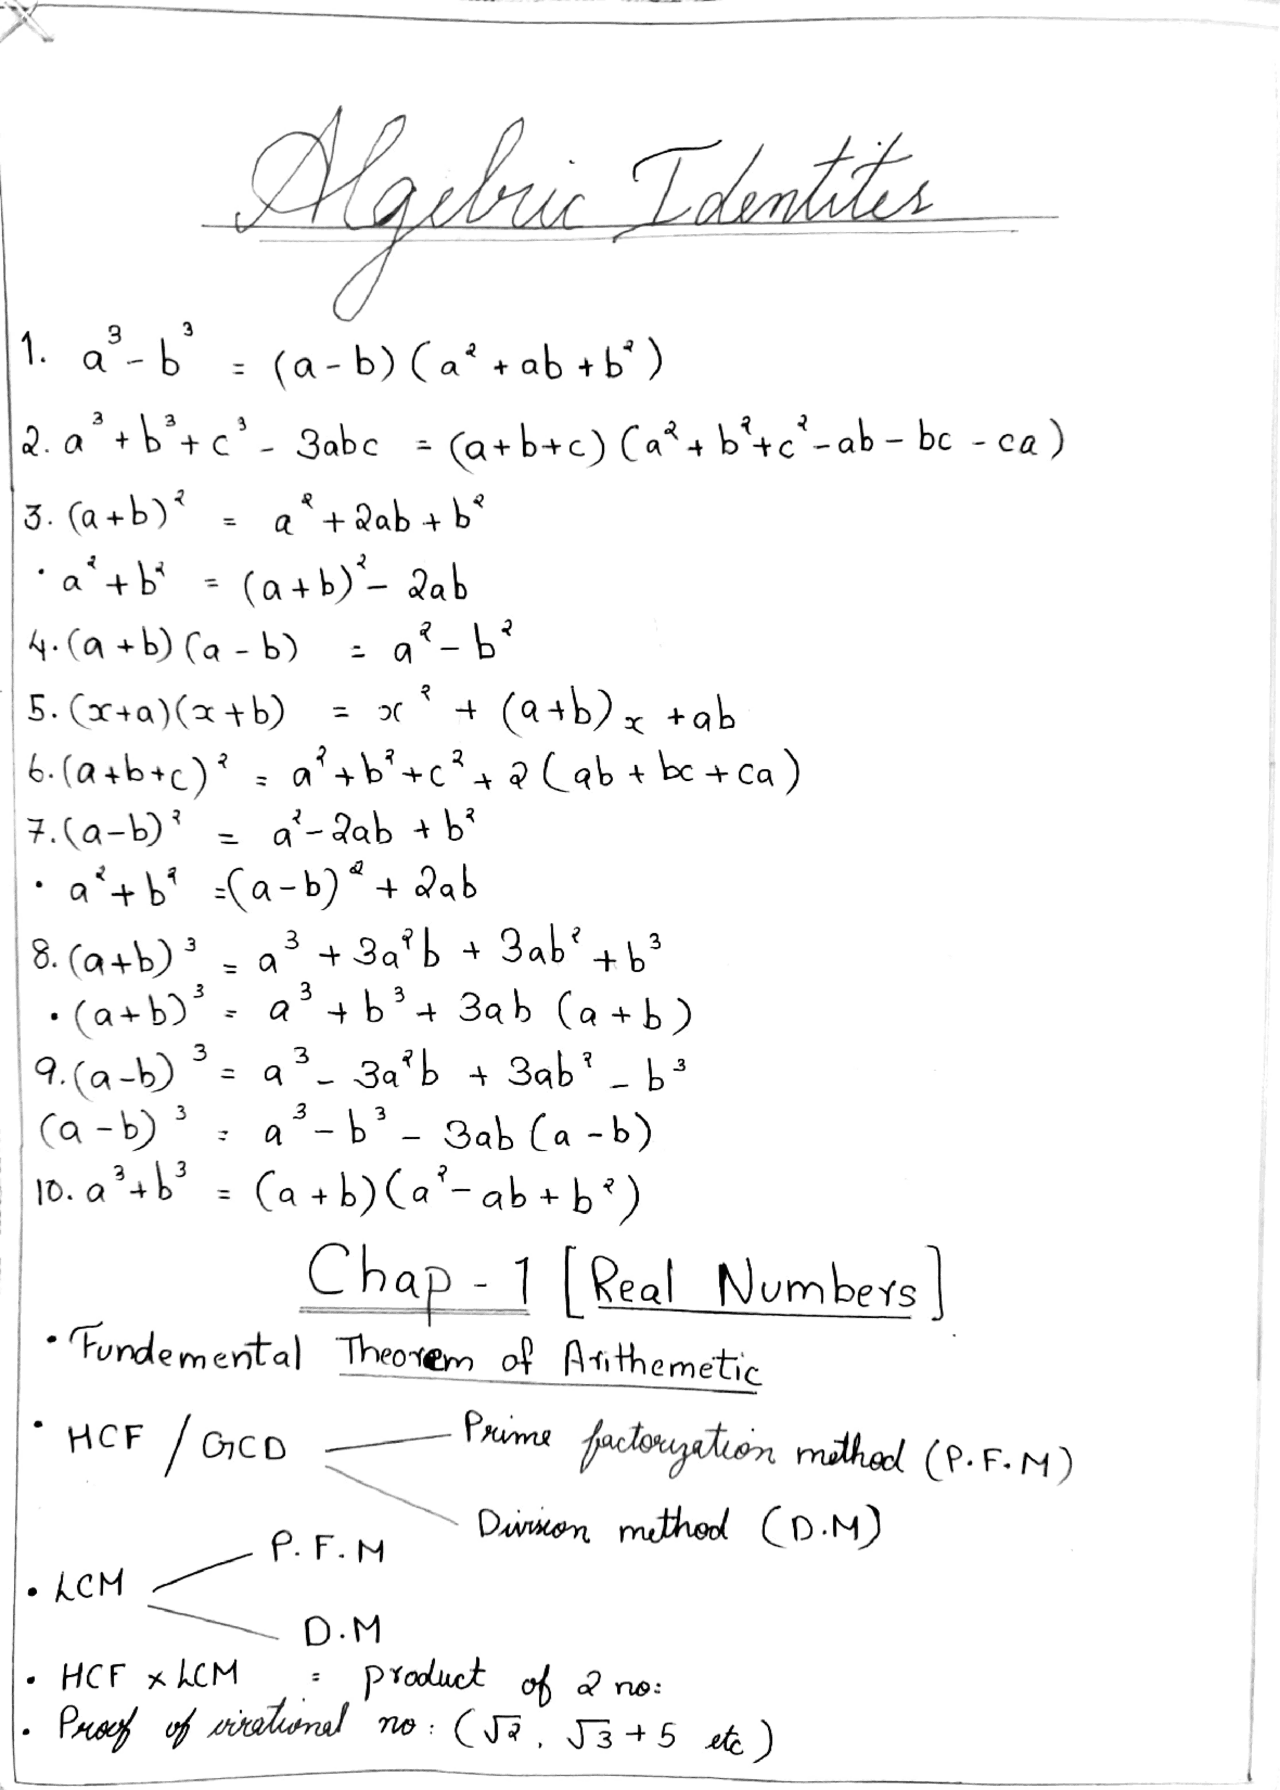 Algebric Identites
1. a³ - b³ = (a - b) (a² + ab + b²)
2. a³ + b³ + c³ - 3abc = (a+b+c) (a² + b² + c² - ab - bc - ca)
3. (a+b)² = a² + 2ab + b²
• a² + b² = (a+b)² - 2ab
4. (a + b) (a - b) = a² - b²
5. (x+a)(x+b) = x² + (a+b)x + ab
6. (a+b+c)² = a² + b² + c² + 2 (ab + bc + ca)
7. (a-b)² = a² - 2ab + b²
• a² + b² = (a-b)² + 2ab
8. (a+b)³ = a³ + 3a²b + 3ab² + b³
• (a+b)³ = a³ + b³ + 3ab (a + b)
9. (a-b)³ = a³ - 3a²b + 3ab² - b³
(a-b)³ = a³ - b³ - 3ab (a - b)
10. a³ + b³ = (a + b) (a² - ab + b²)
Chap - 1 [Real Numbers]
• Fundemental Theorem of Arithemetic
• HCF / GCD Prime factoryzation method (P.F.M)
Division method (D.M)
P.F.M
• LCM
D.M
• HCF x LCM = product of 2 no:
• Proof of irrational no: (√2, √3 + 5 etc)